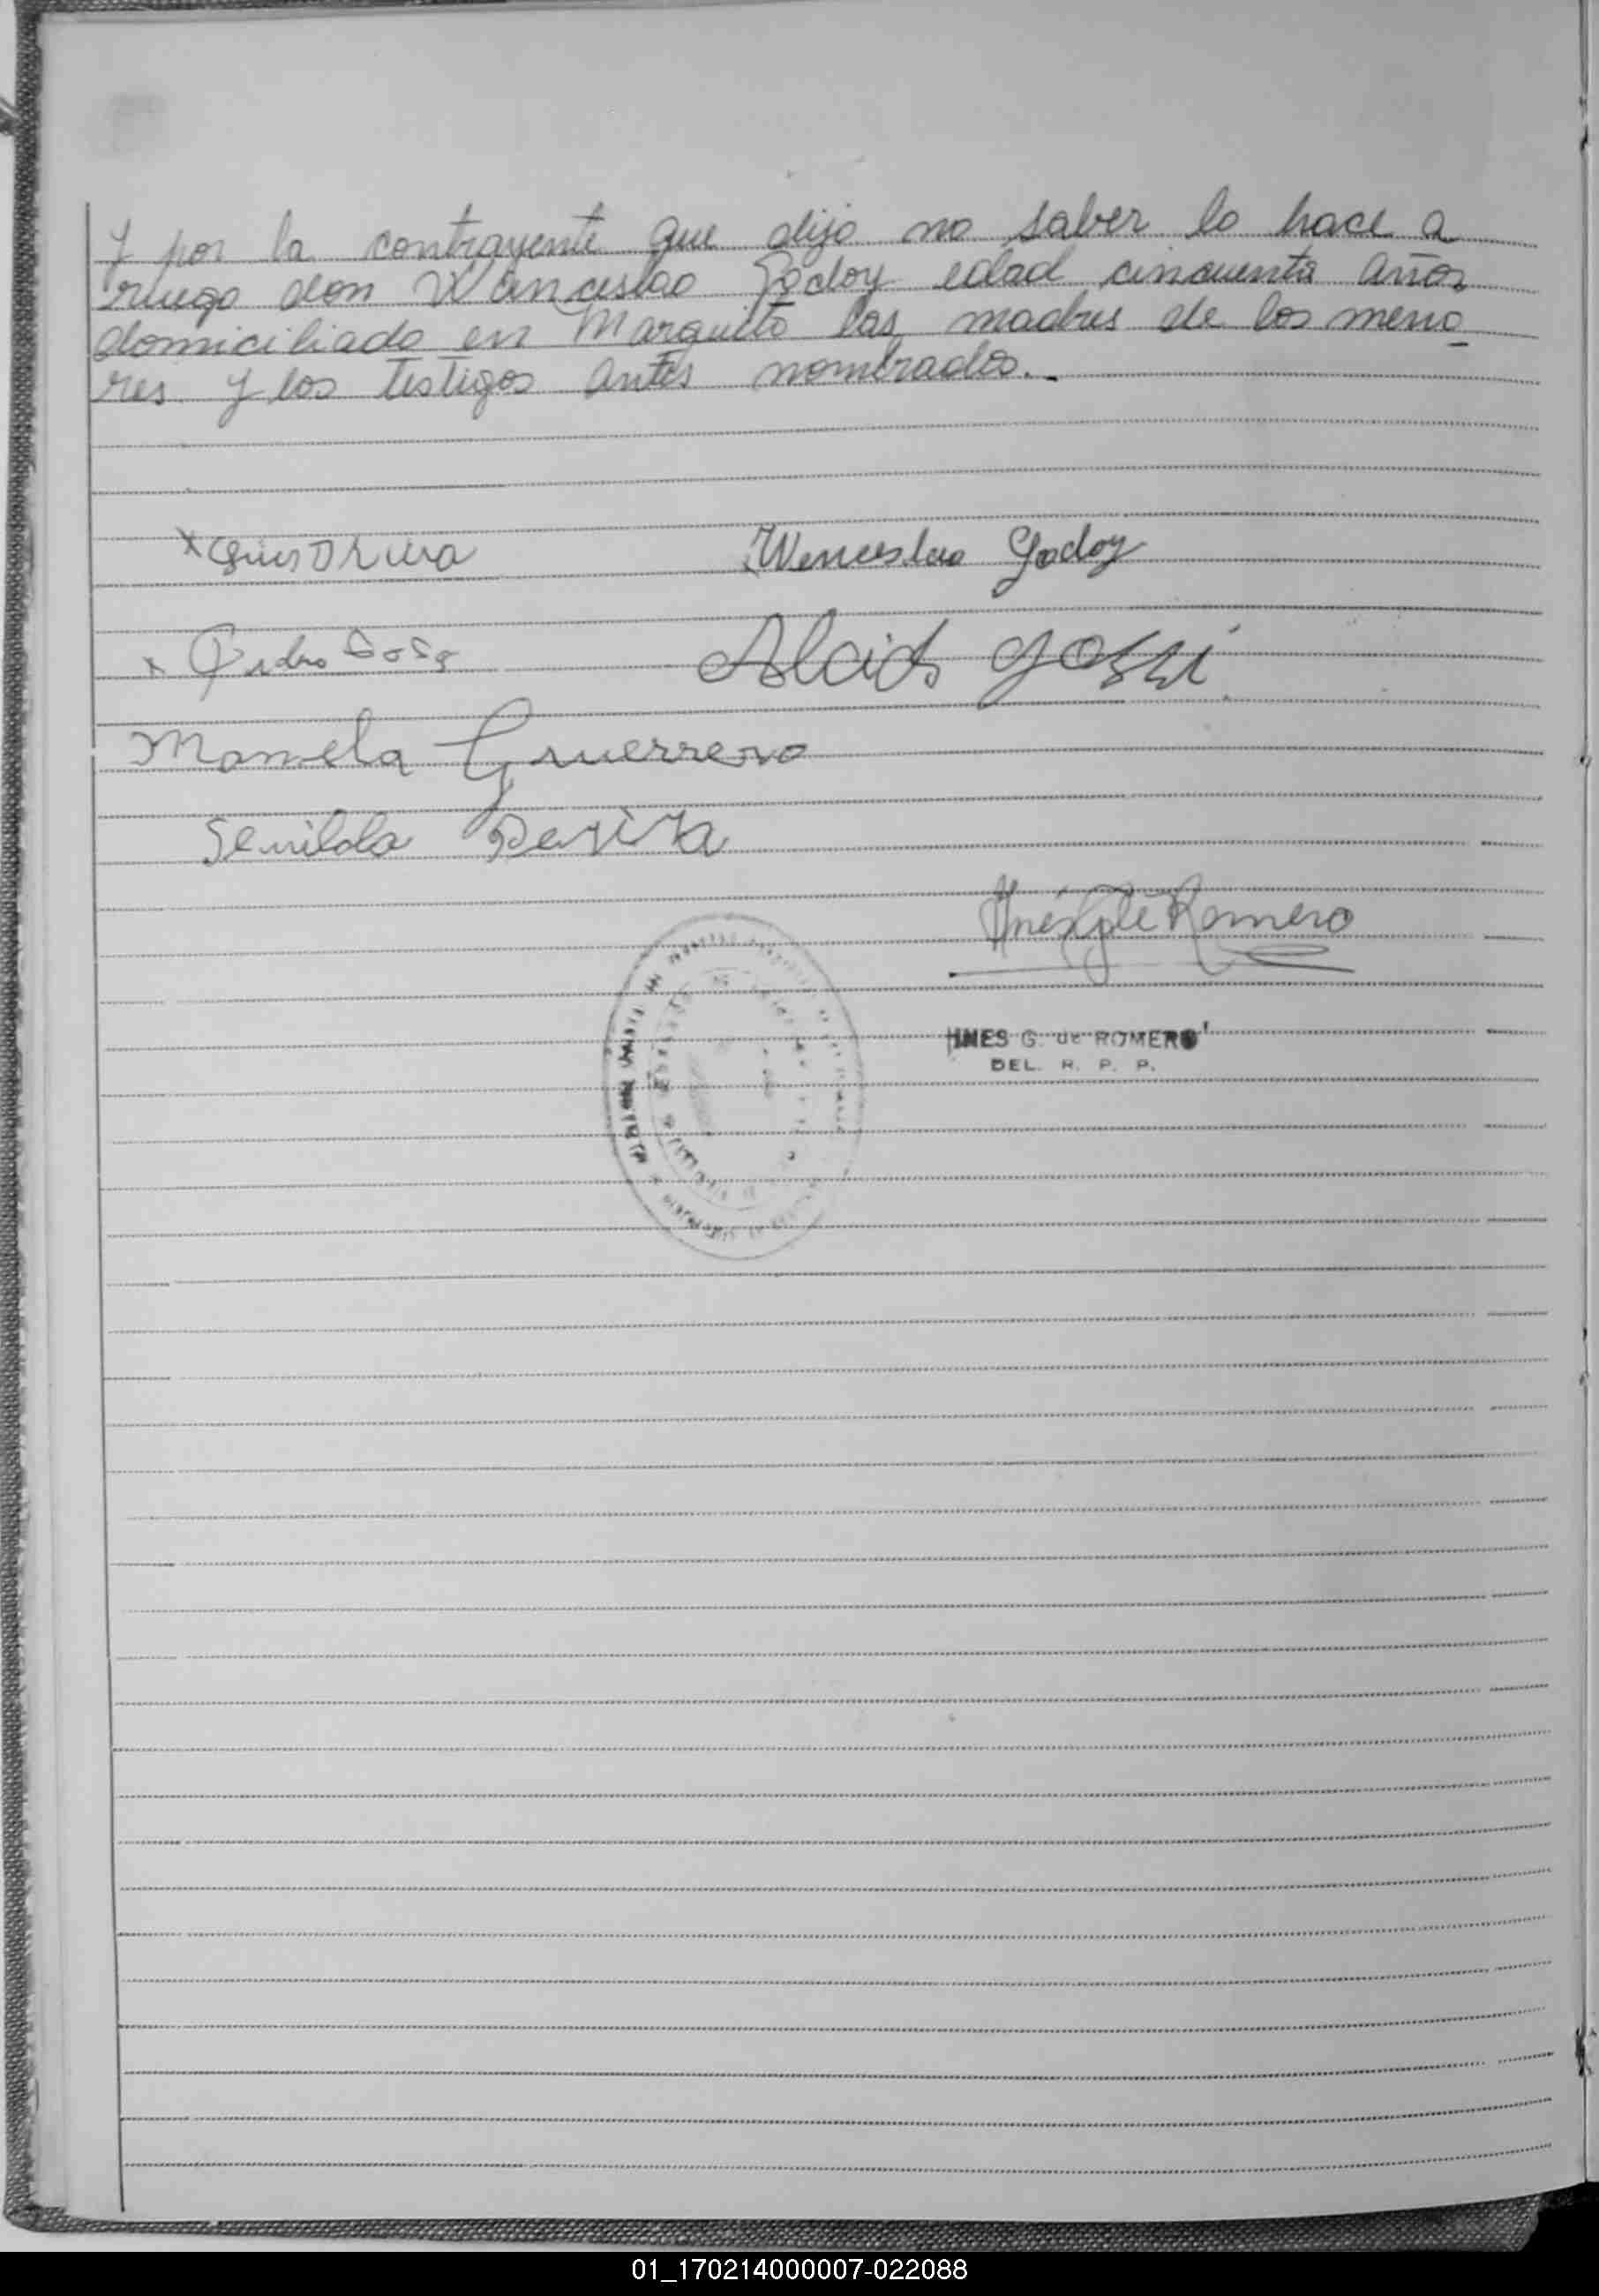 y por la contrayente que dijo no saber lo hace a
ruego don Wanceslao Godoy edad cincuenta años
domiciliado en Marquito las madres de los meno
res y los testigos antes nombrados.-
Wenceslao Godoy
x Pedro Sosa
Manuela Guerrero
Inés G de Romero
INES G. de ROMERO
DEL. R. P. P.
01_170214000007-022088